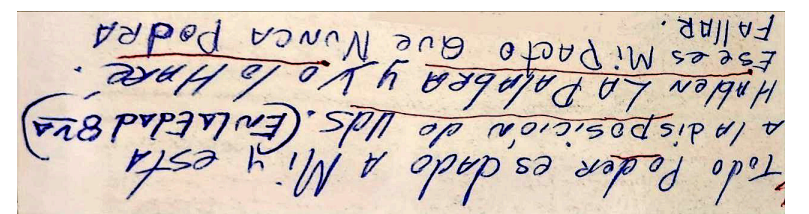 Todo Poder es dado A Mi, y está
A la disposición de Uds. (En la Edad 8va)
Hablen LA PALABRA y Yo lo HARÉ.
Ese es Mi Pacto Que Nunca Podrá
FALLAR.